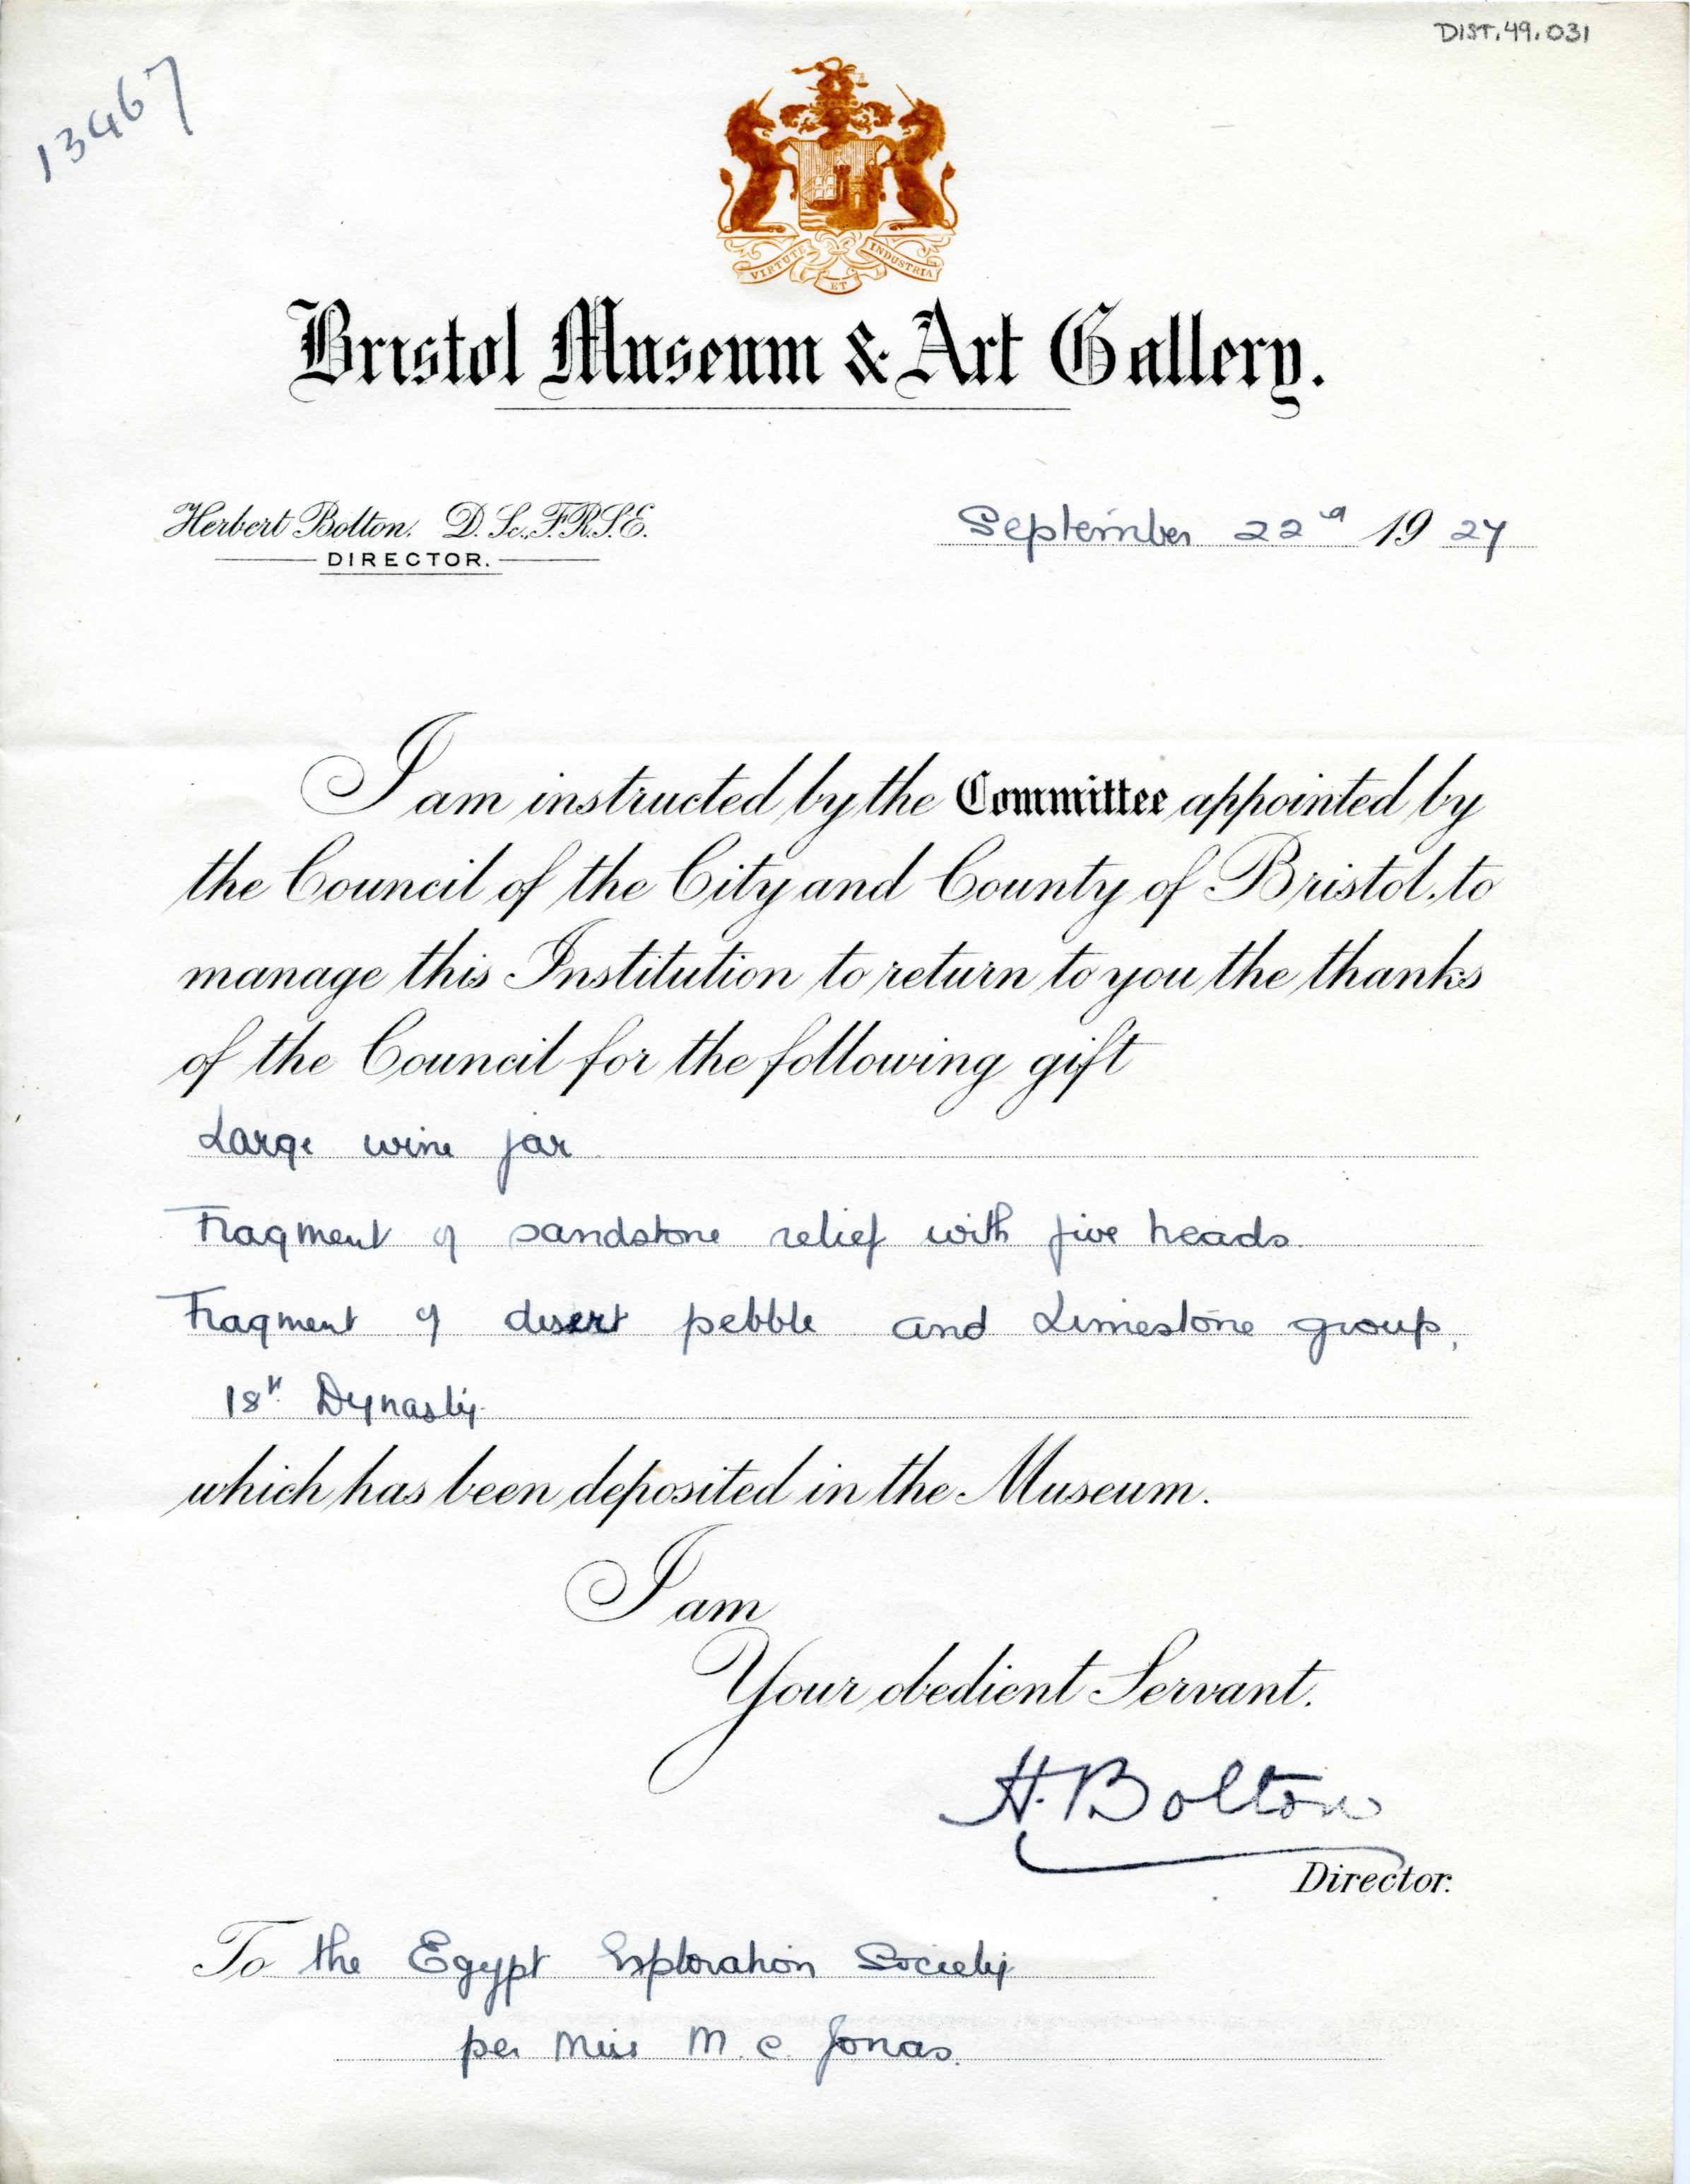 DIST.49.031
13467
VIRTUTE ET INDUSTRIA
Bristol Museum & Art Gallery.
Herbert Bolton. D.Sc., F.R.S.E.
DIRECTOR.
September 22nd 1927
I am instructed by the Committee appointed by
the Council of the City and County of Bristol, to
manage this Institution to return to you the thanks
of the Council for the following gift
Large wine jar
Fragment of sandstone relief with five heads.
Fragment of desert pebble and Limestone group,
18th Dynasty.
which has been deposited in the Museum.
I am
Your obedient Servant.
H. Bolton
Director.
To the Egypt Exploration Society
per Miss M. C. Jonas.